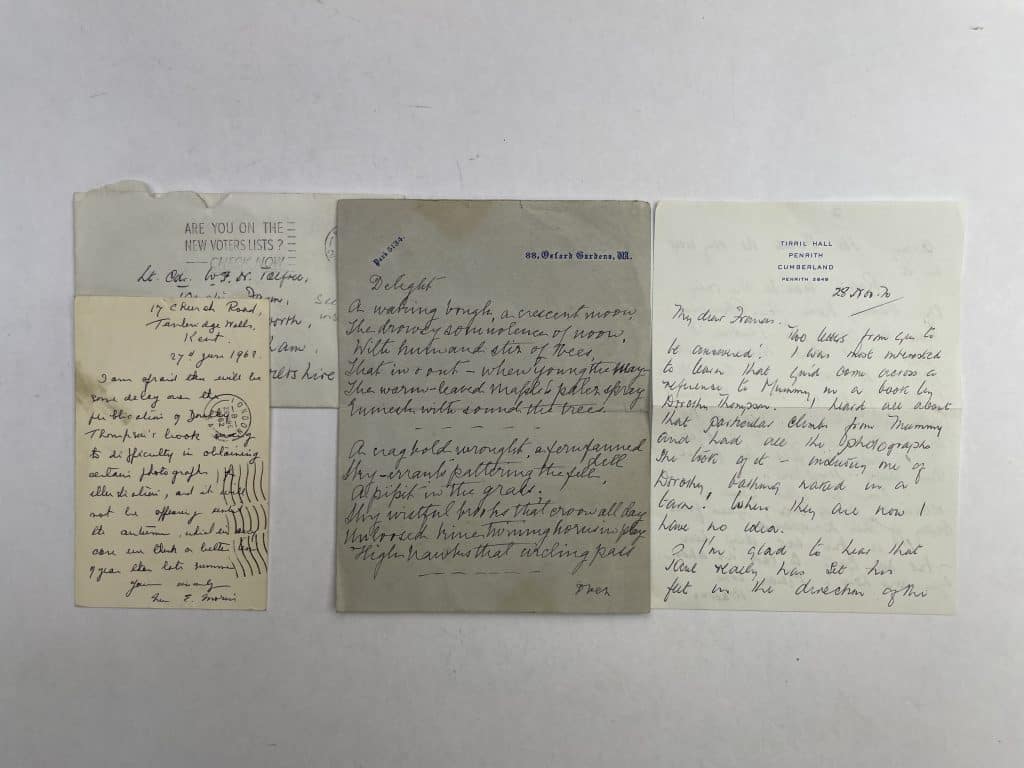 ARE YOU ON THE
NEW VOTERS LISTS?
CHECK NOW!
Lt. Cdr. W. F.
17 Church Road,
Tunbridge Wells,
Kent.
27th June 1962.
I am afraid there will be
some delay over the
publication of Dorothy
Thompson's book owing
to difficulty in obtaining
certain photographs for
illustration, and it will
not be appearing until
the autumn, which in any
case we think a better time
of year than late summer
Yours sincerely
E. Morris
LONDON
Park 5134.
88, Oxford Gardens, W.
Delight
A waking bough, a crescent moon,
The drowsy somnolence of noon,
With hum and stir of bees,
That in & out – when young the May
The warm-leaved maple's paler spray
Enmesh with sound the trees.
A crag bold wrought, a fern fanned dell
Shy-errants pattering the fell,
A pipit in the grass.
Shy wistful brooks that croon all day
Unloosed kine, homing horses in play
High hawks that circling pass
over
TIRRIL HALL
PENRITH
CUMBERLAND
PENRITH 2649
28 Nov. 70
My dear Frances.
Two letters from you to
be answered! I was most interested
to learn that you'd come across a
reference to Mummy in a book by
Dorothy Thompson. I heard all about
that particular climb from Mummy
and had all the photographs
she took of it – including one of
Dorothy, bathing naked in a
tarn! Where they are now I
have no idea.
I'm glad to hear that
really has set his
feet in the direction of the